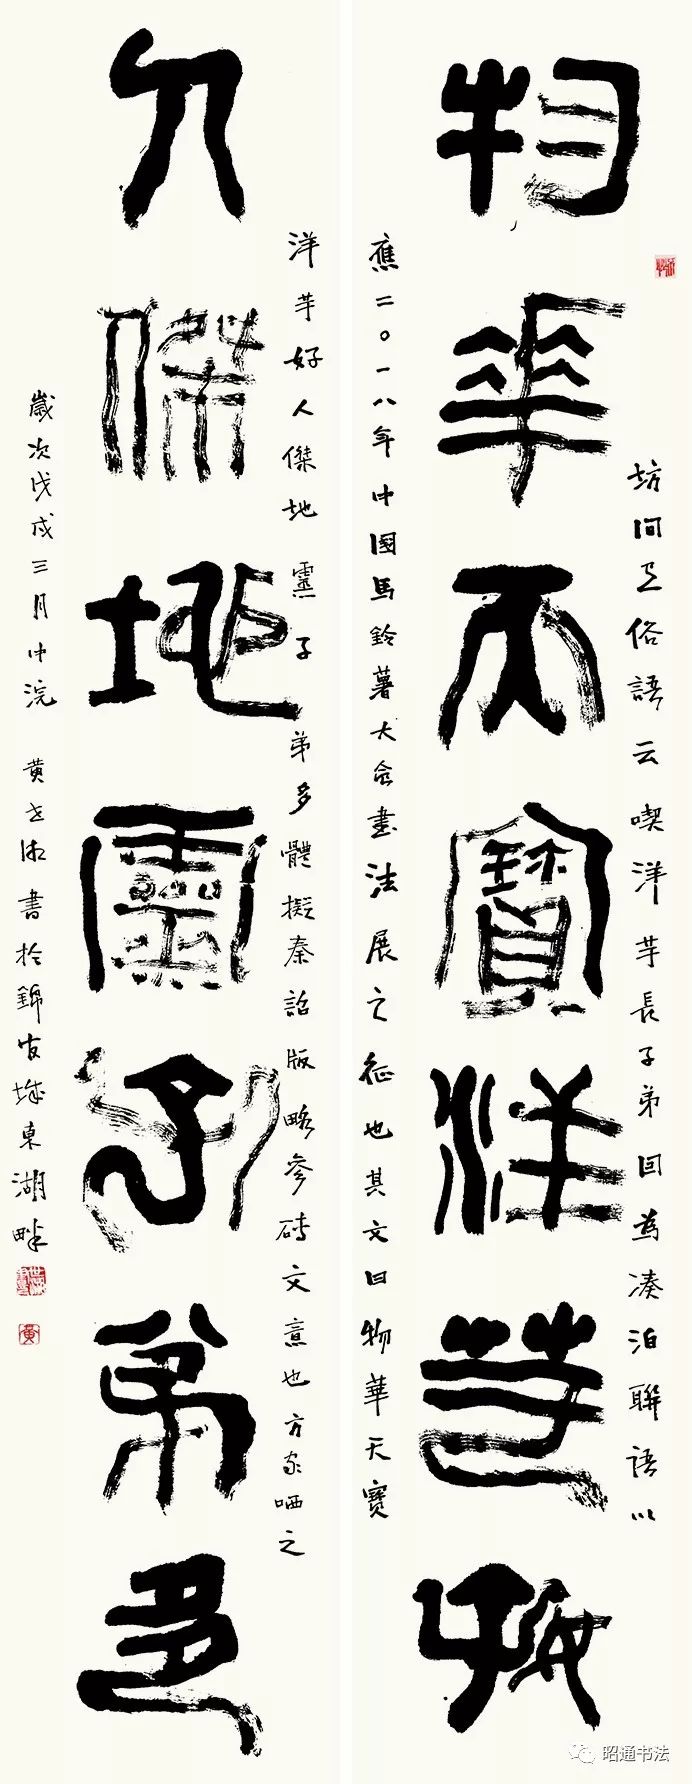 物華天寶洋芋好
坊間有俗語云喫洋芋長子弟回為湊泊聯語以
應二〇一八年中国馬鈴薯大会書法展之征也其文曰物華天寶
人傑地靈子弟多
洋芋好人傑地靈子弟多體擬秦詔版略參磚文意也方家哂之
歲次戊戌三月中浣 黄書於錦官城東湖畔
黄
昭通书法